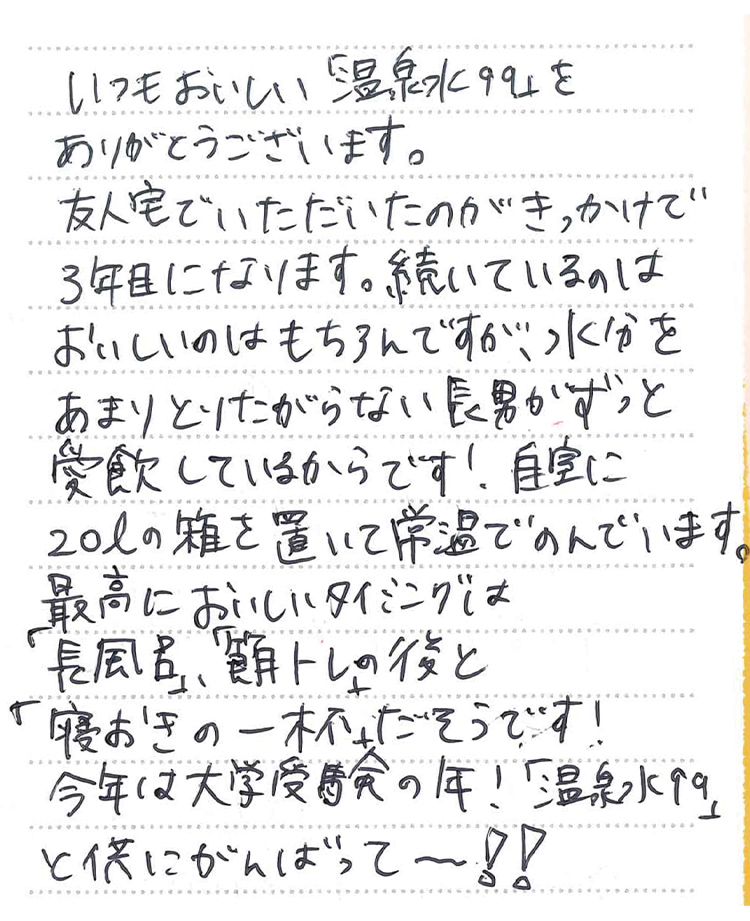 いつもおいしい「温泉水99」を
ありがとうございます。
友人宅でいただいたのがきっかけで
3年目になります。続いているのは
おいしいのはもちろんですが、水分を
あまりとりたがらない長男がずっと
愛飲しているからです!自室に
20lの箱を置いて常温でのんでいます。
最高においしいタイミングは
「長風呂」、「筋トレ」の後と
「寝おきの一杯」だそうです!
今年は大学受験の年!「温泉水99」
と供にがんばって〜!!